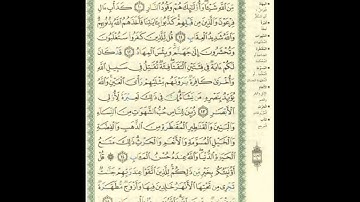 مِّنَ ٱللَّهِ شَيْـًٔا ۖ وَأُو۟لَـٰٓئِكَ هُمْ وَقُودُ ٱلنَّارِ ١٠ كَدَأْبِ ءَالِ
فِرْعَوْنَ وَٱلَّذِينَ مِن قَبْلِهِمْ ۚ كَذَّبُوا۟ بِـَٔايَـٰتِنَا فَأَخَذَهُمُ ٱللَّهُ بِذُنُوبِهِمْ ۗ
وَٱللَّهُ شَدِيدُ ٱلْعِقَابِ ١١ قُل لِّلَّذِينَ كَفَرُوا۟ سَتُغْلَبُونَ
وَتُحْشَرُونَ إِلَىٰ جَهَنَّمَ ۚ وَبِئْسَ ٱلْمِهَادُ ١٢ قَدْ كَانَ
لَكُمْ ءَايَةٌ فِى فِئَتَيْنِ ٱلْتَقَتَا ۖ فِئَةٌ تُقَـٰتِلُ فِى سَبِيلِ ٱللَّهِ
وَأُخْرَىٰ كَافِرَةٌ يَرَوْنَهُم مِّثْلَيْهِمْ رَأْىَ ٱلْعَيْنِ ۚ وَٱللَّهُ
يُؤَيِّدُ بِنَصْرِهِۦ مَن يَشَآءُ ۗ إِنَّ فِى ذَٰلِكَ لَعِبْرَةً لِّأُو۟لِى
ٱلْأَبْصَـٰرِ ١٣ زُيِّنَ لِلنَّاسِ حُبُّ ٱلشَّهَوَٰتِ مِنَ ٱلنِّسَآءِ
وَٱلْبَنِينَ وَٱلْقَنَـٰطِيرِ ٱلْمُقَنطَرَةِ مِنَ ٱلذَّهَبِ وَٱلْفِضَّةِ
وَٱلْخَيْلِ ٱلْمُسَوَّمَةِ وَٱلْأَنْعَـٰمِ وَٱلْحَرْثِ ۗ ذَٰلِكَ مَتَـٰعُ
ٱلْحَيَوٰةِ ٱلدُّنْيَا ۖ وَٱللَّهُ عِندَهُۥ حُسْنُ ٱلْمَـَٔابِ ١٤ قُلْ
أَؤُنَبِّئُكُم بِخَيْرٍ مِّن ذَٰلِكُمْ ۚ لِلَّذِينَ ٱتَّقَوْا۟ عِندَ رَبِّهِمْ جَنَّـٰتٌ
تَجْرِى مِن تَحْتِهَا ٱلْأَنْهَـٰرُ خَـٰلِدِينَ فِيهَا وَأَزْوَٰجٌ مُّطَهَّرَةٌ